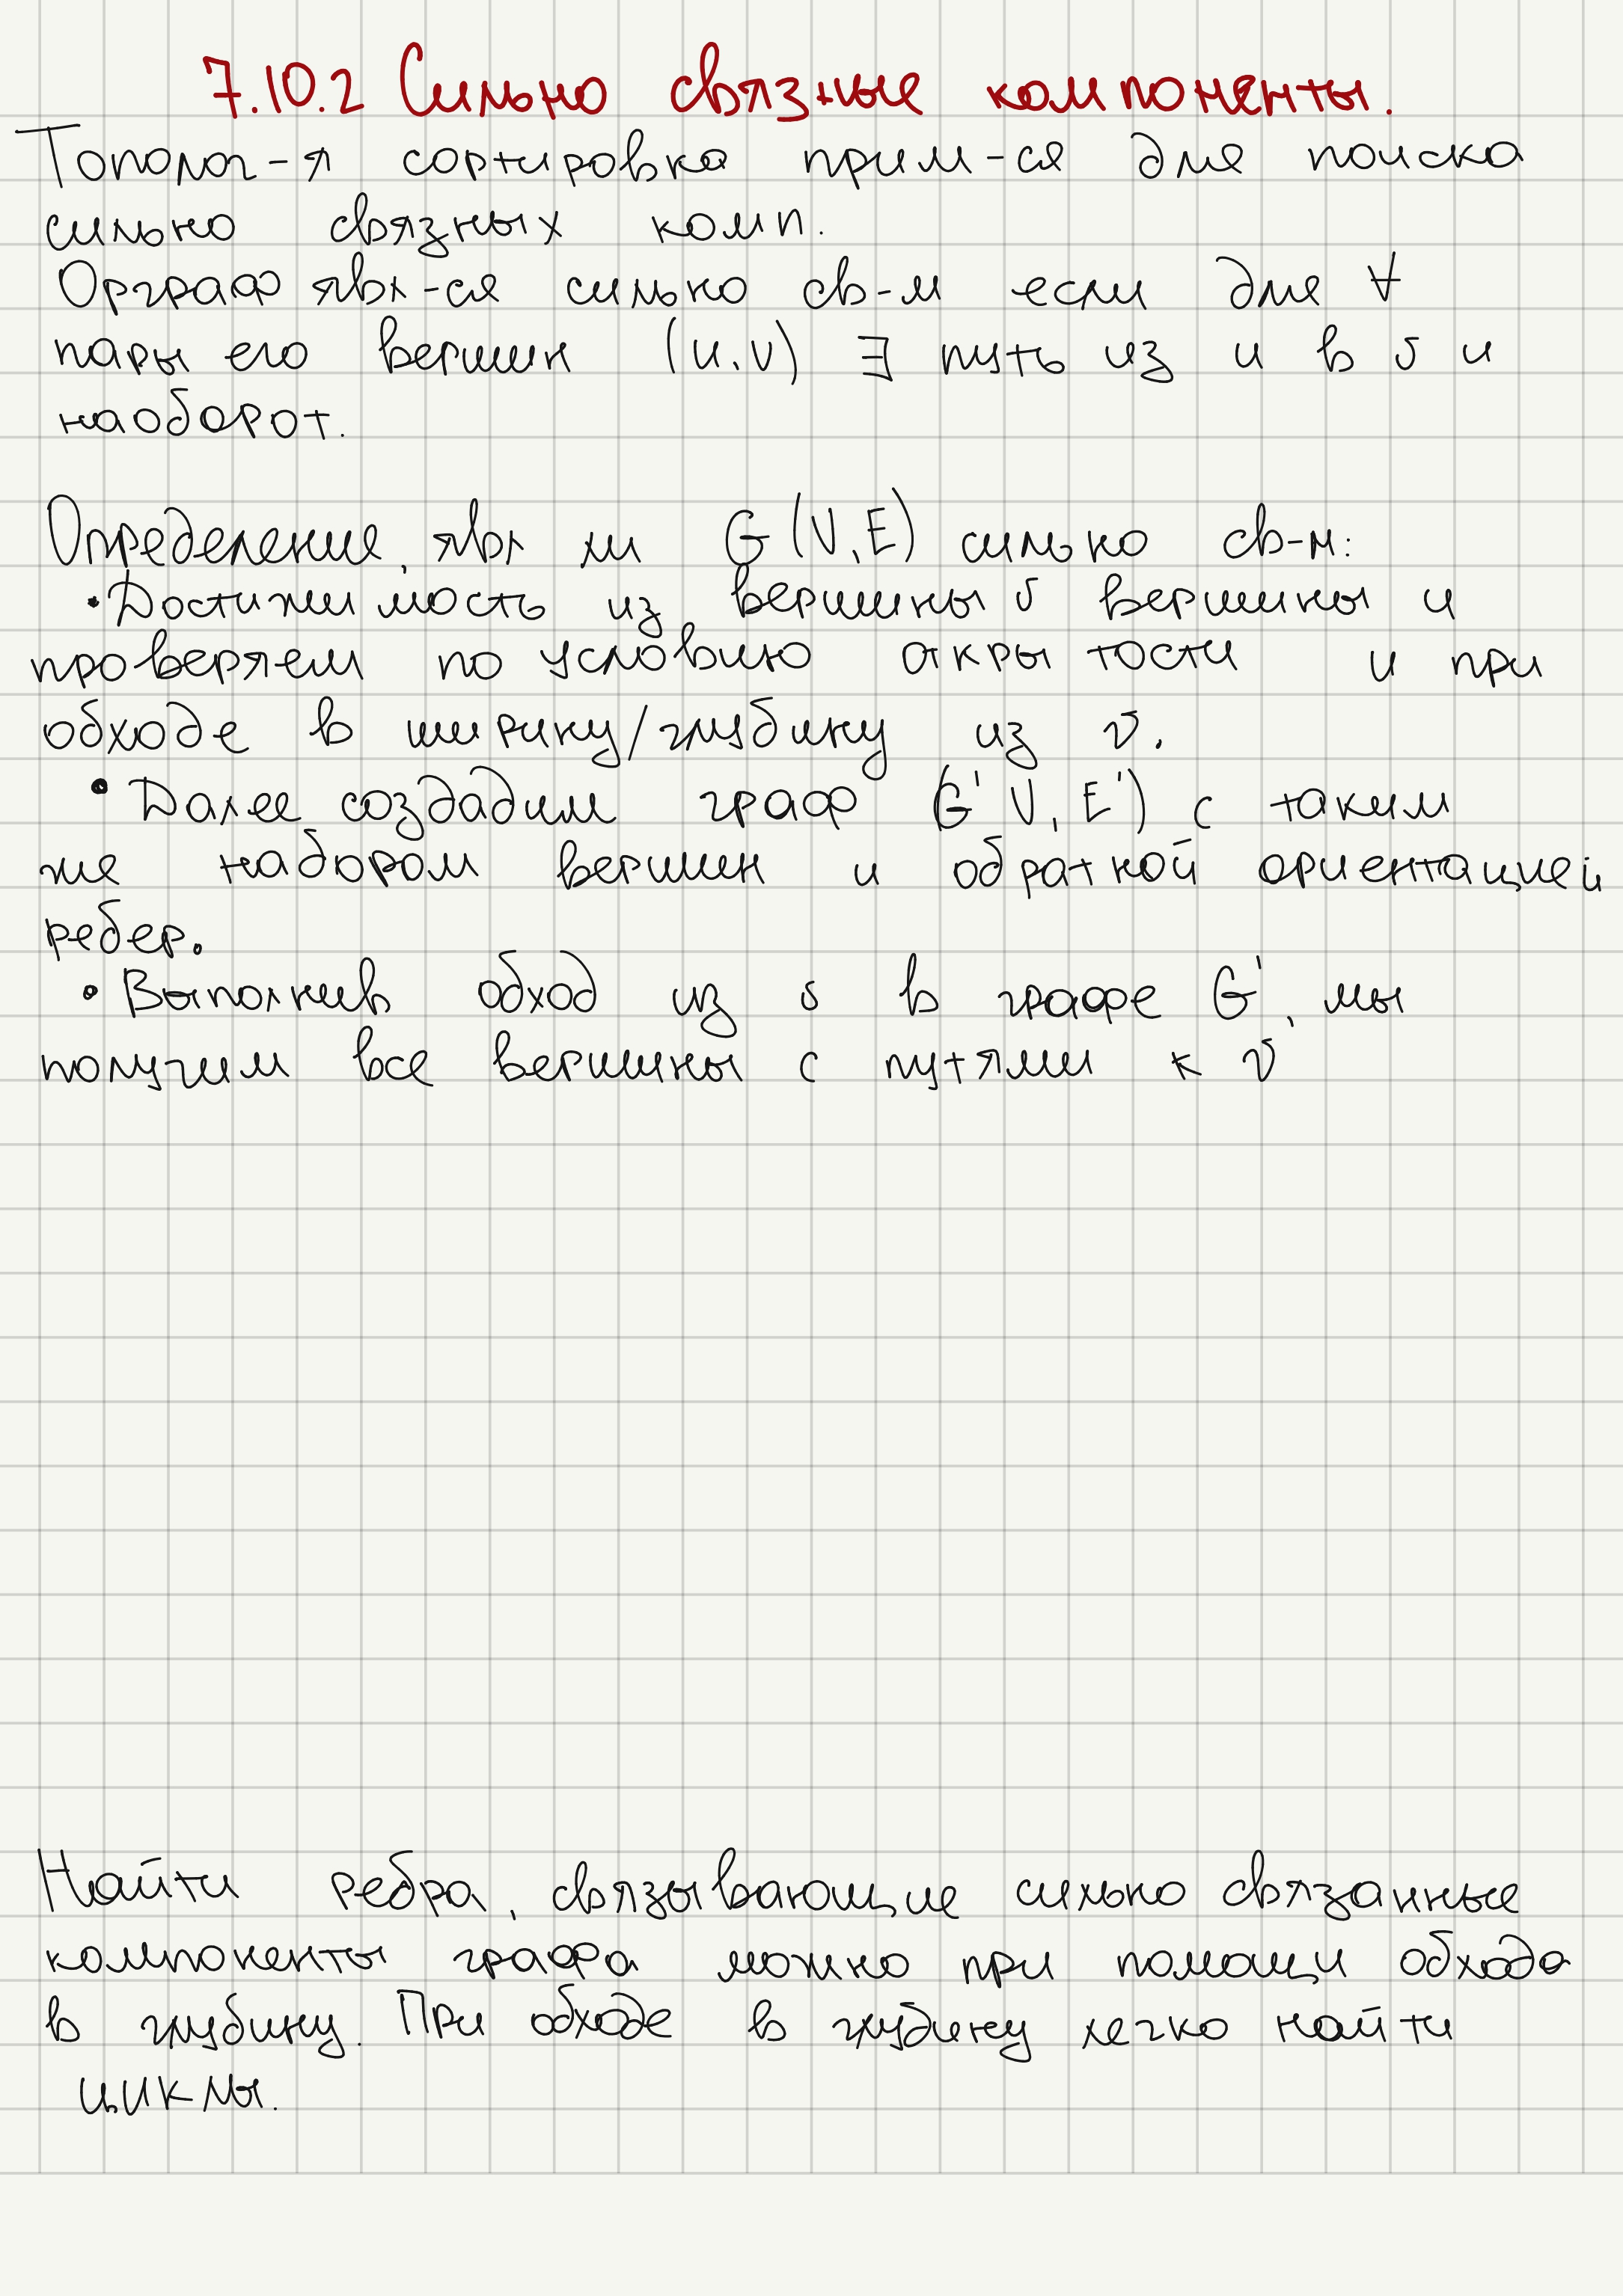 7.10.2 Сильно связные компоненты.
Тополог-я сортировка прим-ся для поиска
сильно связных комп.
Орграф явл-ся сильно св-м если для ∀
пары его вершин (u,v) ∃ путь из u в v и
наоборот.
Определение, явл ли G(V,E) сильно св-м:
• Достижимость из вершины v вершины u
проверяем по условию открытости u при
обходе в ширину/глубину из v.
• Далее создадим граф (G' V, E') с таким
же набором вершин и обратной ориентацией
ребер.
• Выполнив обход из v в графе G', мы
получим все вершины с путями к v
Найти ребра, связывающие сильно связанные
компоненты графа можно при помощи обхода
в глубину. При обходе в глубину легко найти
циклы.